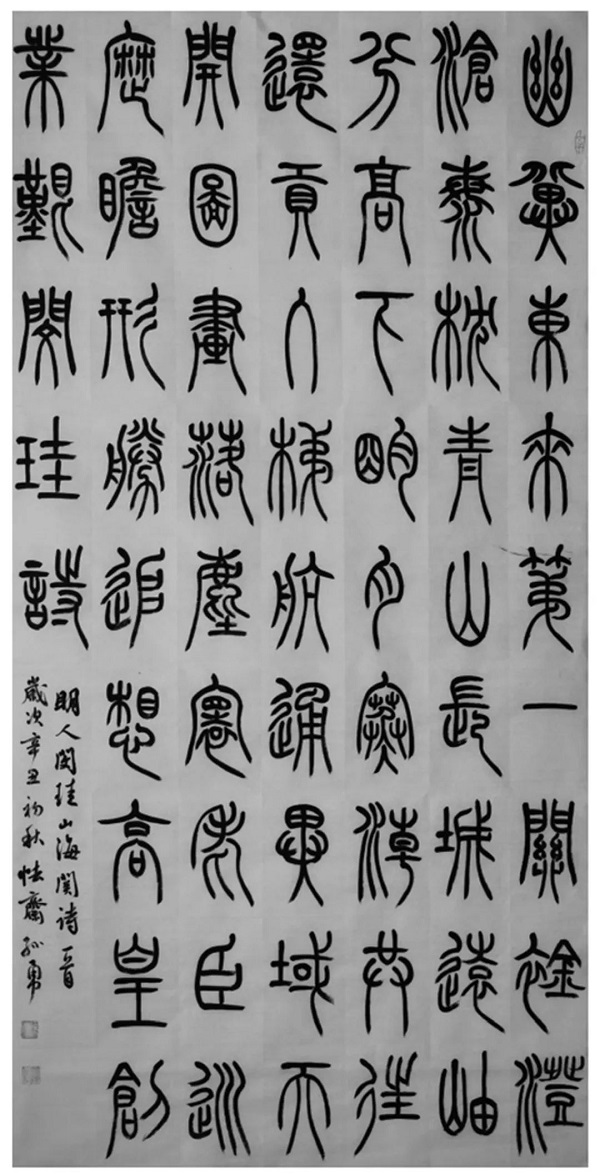 幽冀東來第一關襟澄
滄海枕青山長城遠岫
分高下明月寒潮共往
還貢入梯航通異域天
開圖畫落塵寰老臣巡
歷瞻形勝追想高皇創
業艱閔珪詩
明人閔珪山海關詩一首
歲次辛丑初秋怯齋孫勇